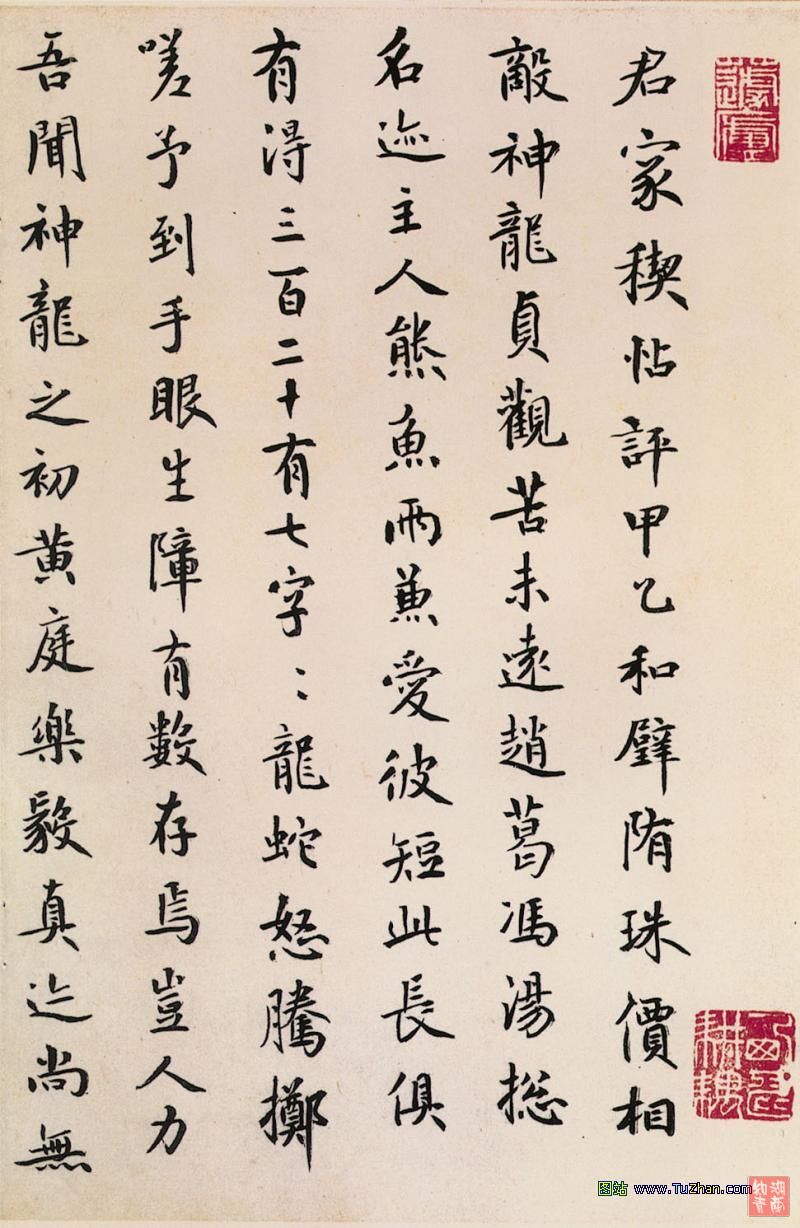 君家稧帖評甲乙和璧隋珠價相
敵神龍貞觀苦未遠趙葛馮湯揔
名迹主人熊魚兩兼愛彼短此長俱
有得三百二十有七字〻龍蛇怒騰擲
嗟予到手眼生障有數存焉豈人力
吾聞神龍之初黃庭樂毅真迹尚無
图站 www.TuZhan.com